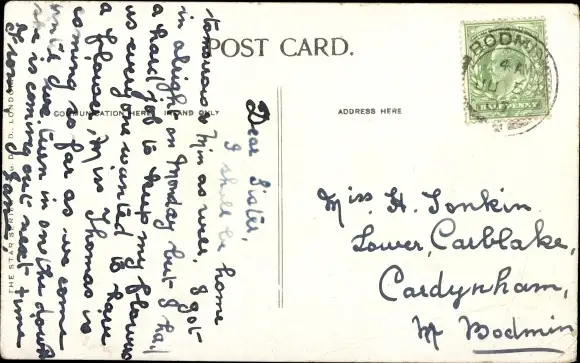 POST CARD.
COMMUNICATION HERE INLAND ONLY
ADDRESS HERE
BODMIN
HALFPENNY
Dear Sister,
I shall be home
tomorrow & Min as well, I got
in alright on Monday but I had
a hard job to keep my flowers
as everyone wanted to have
a flower, Miss Thomas is
coming so far as we come
until we turn in on the down
she is coming out next time
From
Miss. H. Tonkin
Lower, Carblake,
Cardynham,
Nr Bodmin
THE STAR
LONDON